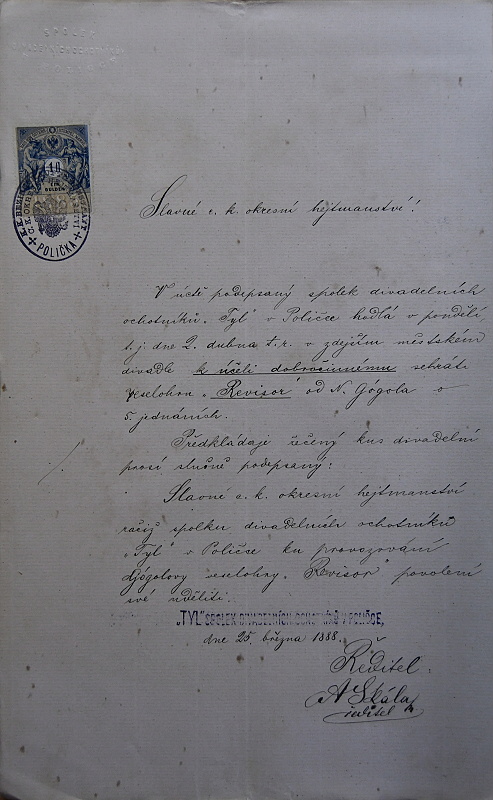 SPOLEK
10
GULDEN
POLIČKA
Slavné c. k. okresní héjtmanství!
V úctě podepsaný spolek divadelních
ochotníků „Tyl" v Poličce hodlá v pondělí
t. j. dne 2. dubna t. r. v zdejším městském
divadle k účeli dobročinnému sehráti
veselohru „Revisor" od N. Gógola o
5 jednáních.
Předkládaje řečený kus divadelní
prosí slušně podepsaný:
Slavné c. k. okresní héjtmanství
račiž spolku divadelních ochotníků
„Tyl" v Poličce ku provozování
veselohry „Revisor" povolení
své uděliti.
„TYL" SPOLEK DIVADELNÍCH OCHOTNÍKŮ V POLIČCE,
dne 25. března 1888.
Ředitel.
A Skála
ředitel